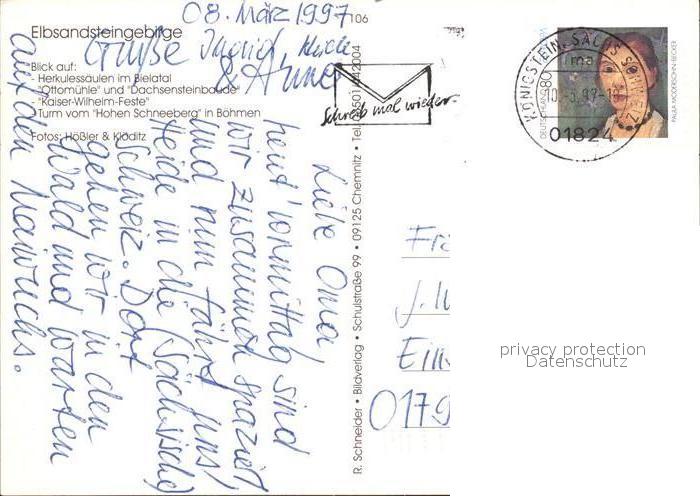 08. März 1997
106
Elbsandsteingebirge
Blick auf:
- Herkulessäulen im Bielatal
- "Ottomühle" und "Dachsensteinbaude"
- "Kaiser-Wilhelm-Feste"
- Turm vom "Hohen Schneeberg" in Böhmen
Fotos: Hößler & Kloditz
Liebe Oma,
heut' vormittag sind
wir zusammen spaziert
und nun fährt uns
Heide in die (Sächsische)
Schweiz. Dort
gehen wir in den
Wald und warten
auf den Nachwuchs.
Grüße Ingrid, Heide
& Anne
R. Schneider • Bildverlag • Schulstraße 99 • 09125 Chemnitz • Tel.
Schreib mal wieder
KÖNIGSTEIN, SÄCHS SCHWEIZ
01824
80
PAULA MODERSOHN-BECKER
0179
privacy protection
Datenschutz